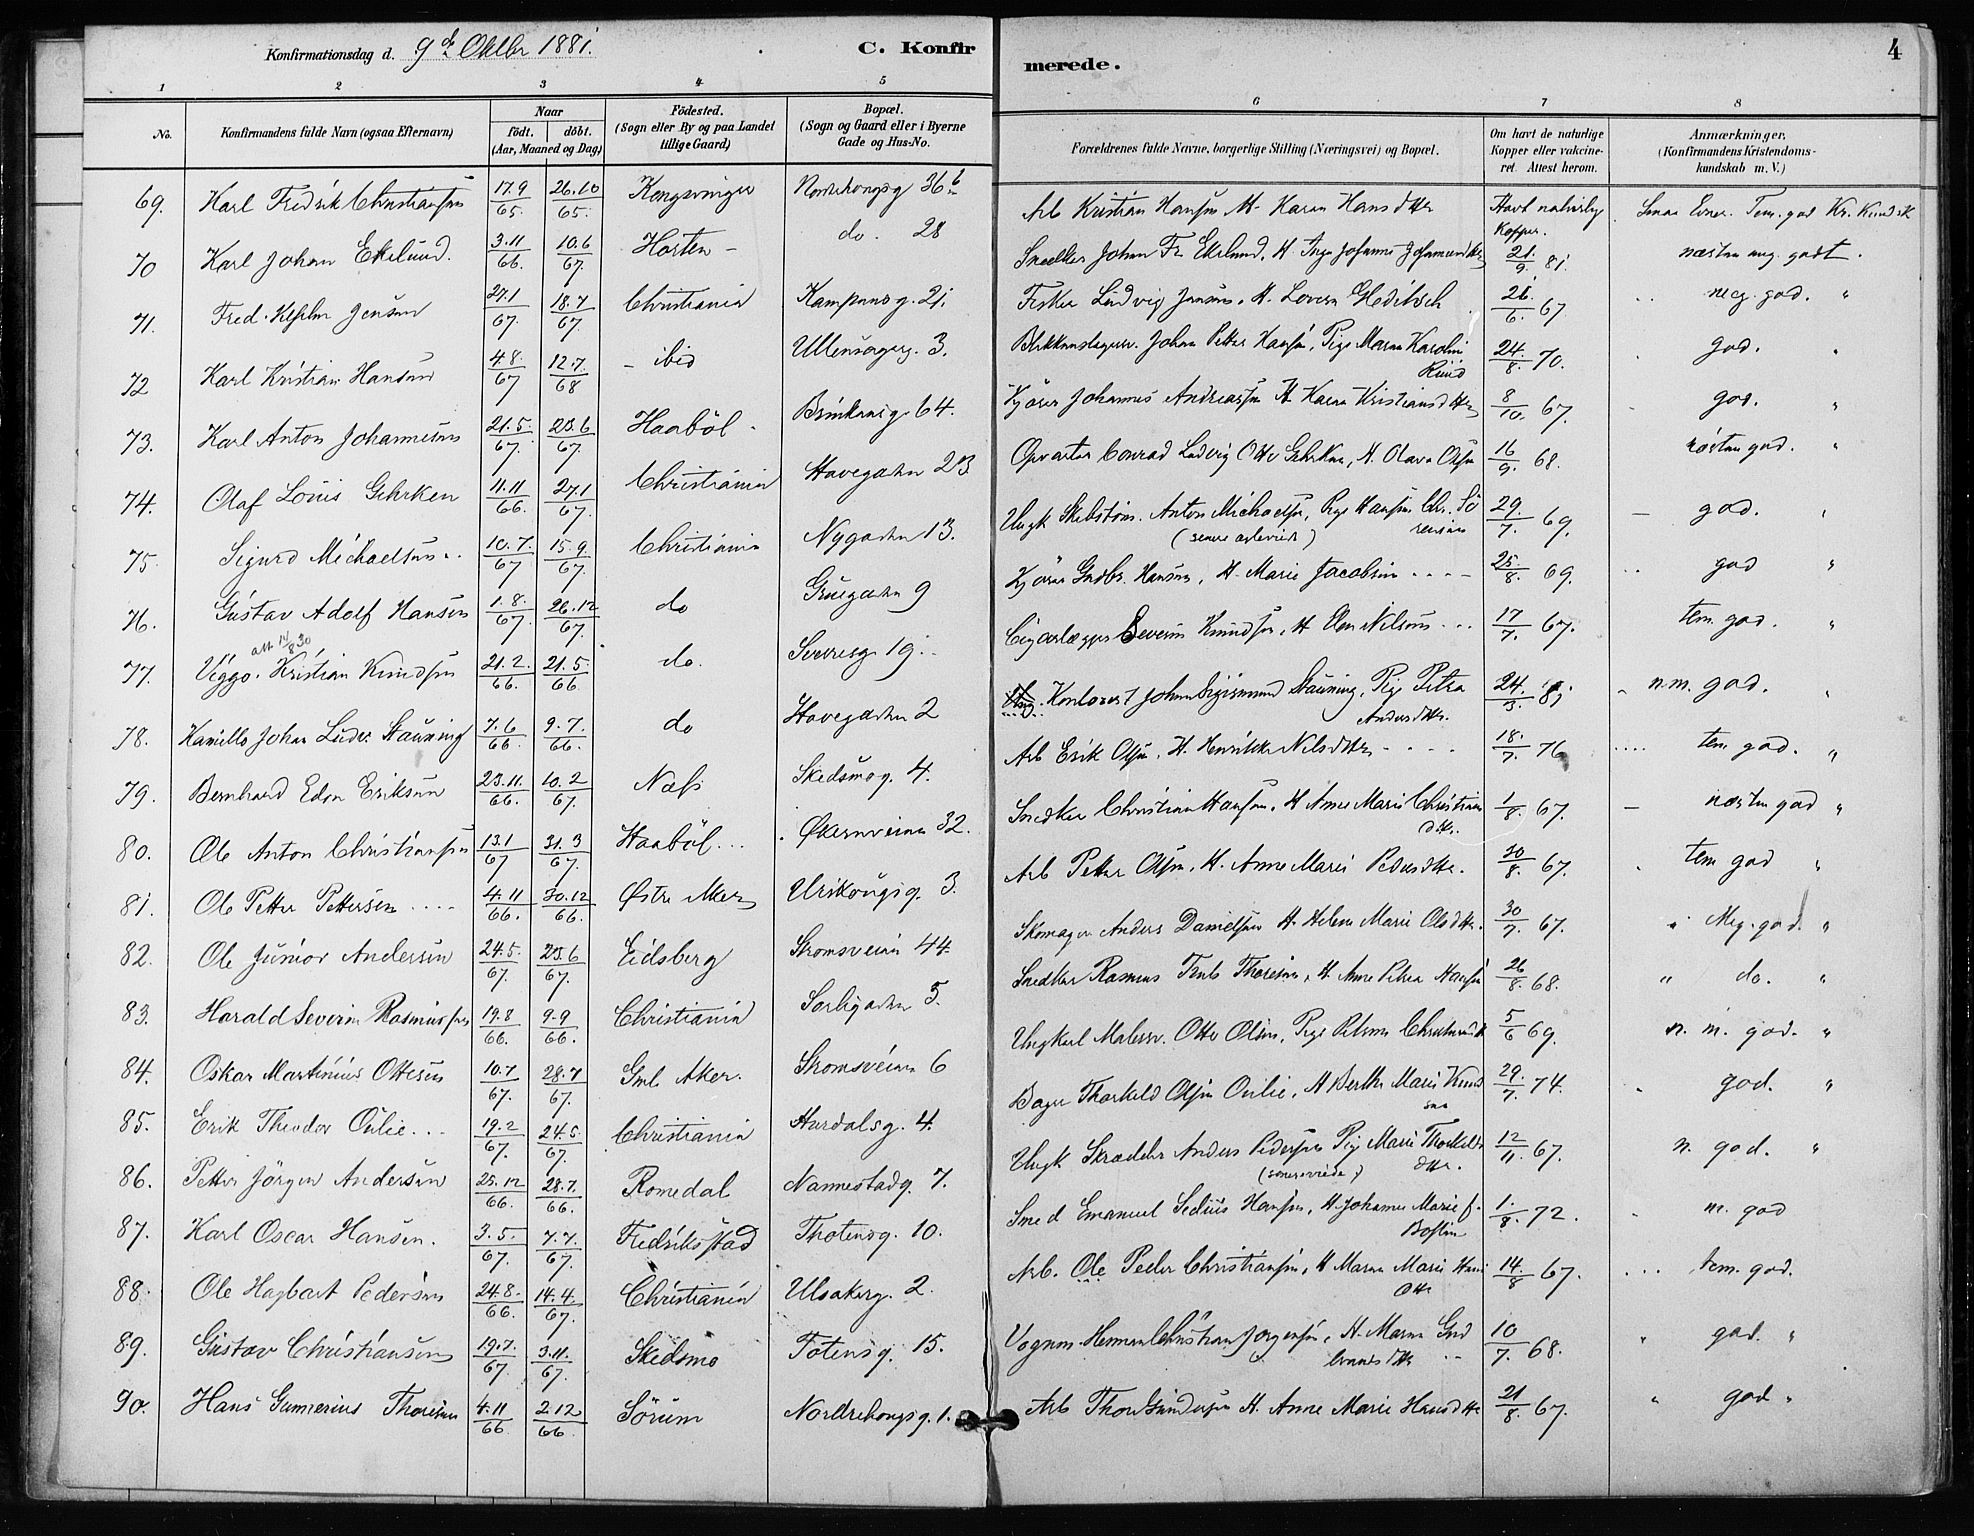 Konfirmationsdag d. 9de Oktbr 1881.
C. Konfirmerede.
4
1 2 3 4 5 6 7 8
No.
Konfirmandens fulde Navn (ogsaa Efternavn)
Naar
födt. döbt.
(Aar, Maaned og Dag)
Födested.
(Sogn eller By og paa Landet
tillige Gaard)
Bopæl.
(Sogn og Gaard eller i Byerne
Gade og Hus-No.
Forældrenes fulde Navne, borgerlige Stilling (Næringsvei) og Bopæl.
Om havt de naturlige
Kopper eller vakcine-
ret. Attest herom.
Anmærkninger.
(Konfirmandens Kristendoms-
kundskab m. V.)
69. Karl Fredrik Christiansen 17.9/65. 26.10/65. Kongsvinger Nordrehougsg 36 b Arb Kristian Hansen H. Karen Hansdtter Havt naturlige Kopper. Smaa Evner. Tem. god Kr. Kundsk
70 Karl Johan Ekelund. 3.11/66. 10.6/67. Horten - do. 28 Snedker Johan Fr. Ekelund, H. Inga Johanne 21/9. 81. næsten meg. godt.
71. Fred. Vilhelm Jensen 27.1/67. 18.7/67. Christiania Kampensg. 21. Fisker Ludvig Jensen, H. Lovera Gleditsch 26/6. 67 meg. god. "
72 Karl Kristian Hansen 4.8./67 12.7./68 - ibid Ullensagerg. 3. Blikkenslager. Johan Petter Hansen, Pige Maren Karoline Ruud 24./8. 70. god. "
73. Karl Anton Johannesen 21.5./67. 23.6/67. Haaböl - Brinkensg. 64. Kjører Johannes Andreassen H. Karen Kristiansdtter 8/10. 67. god. "
74. Olaf Louis Gehrken 11.11/66. 27.1/67. Christiania Havegaden 23. Opvarter Conrad Ludvig Otto Gehrken, H. Olava Olsen 16/9. 68. næsten god. "
75. Sigurd Michaelsen.. 10.7./67 15.9./67. Christiania Nygaden 13. Ungk Anton Michaelsen, Pige Hansine Chr. Sörensen 29/7. 69. - god. "
76. Gustav Adolf Hansen 1.8./67. 26.12/67. do Gruegaden 9 Kjører Gudbr. Hansen, H. Marie Jacobsen .... 25./8. 69. god "
att 14/8 30
77. Viggo Kristian Knudsen 21.2./66. 21.5./66 do. Sverresg 19.. Cigarlægger Severin Knudsen, H. Elen Nilsen ... 17/7. 67. tem. god. "
78. Kamillo Johan Ludv. Stauning 7.6/66. 9.7./66. do Havegaden 2 Kontorist Johan Sigismund Stauning, Pige Petra Andersdtter. 24./3. 81 n.m. god. "
79. Bernhard Edvn Eriksen 23.11./66. 10.2/67. Næs Skedsmog. 4. Arb Erik Olsen, H. Henrikke Nilsdtter - ... 18./7. 76 .... tem god. "
80. Ole Anton Christiansen 13.1/67 31.3/67. Haaböl... Økernveien 32. Snedker Christian Hansen, H Anne Marie Christiansdtr. 1/8. 67. - næsten god "
81. Ole Petter Pettersen .... 4.11/66. 30.12/66. Østre Aker Uriksougsg. 3. Arb Petter Olsen, H. Anne Marie Pedersdtter. 30/8. 67. tem god "
82. Ole Junior Andersen 24.5./67. 23.6/67. Eidsberg Strømsveien 44. Skomager Anders Danielsen H. Helene Marie Olsdtter. 30/7. 67. " Meg. god. "
83. Harald Severin Rasmussen 19.8/66. 9.9/66. Christiania Sorligaden 5. Snedker Rasmus Thoresen, H. Anne Petrea Hansen 26/8. 68. " do. "
84. Oskar Martinius Ottesen 10.7/67. 28.7/67. Gml Aker. Strömsveien 6 Ungkarl Malersv. Otto Olsen, Pige 5/6 69. n. m. god. "
85. Erik Theodor Oulie... 19.2/67. 24.5./67. Christiania Hurdalsg. 4. Bager Thorkeld Olsen Oulie, H Berthe Marie Knudsen 29./7. 74. god. "
86. Petter Jörgen Andersen 25.12/66. 28.7./66. Romedal Nannestadg. 7. Ungk Skrædder Anders Pedersen Pige Marie Thorkeldsdtter. 12/11. 67. n. god. "
87. Karl Oscar Hansen. 3.5./67. 7.7./67. Fredrikstad Thotensg. 10. Smed Emanuel Sedius Hansen, H. Johanne Marie f. 1./8. 72. m. god
88. Ole Hagbart Pedersen 24.8./66. 14.4./67. Christiania Ulsakerg. 2. Arb. Ole Peder Christiansen, H Maren Marie Hansdtter 14./8 67. ... tem. god.
89. Gustav Christiansen 19.7./67. 3.11./67. Skedsmo Totensg. 15. Vognm. Herman Christian Jørgensen, H. Maren Gudbrandsdtter 10/7. 68. " god. "
90. Hans Gunnerius Thoresen 4.11/66. 2.12/66. Sörum Nordrehougsg. 1. Arb Thor Gundersen H. Anne Marie Hansdtter 21/8. 67. " god "